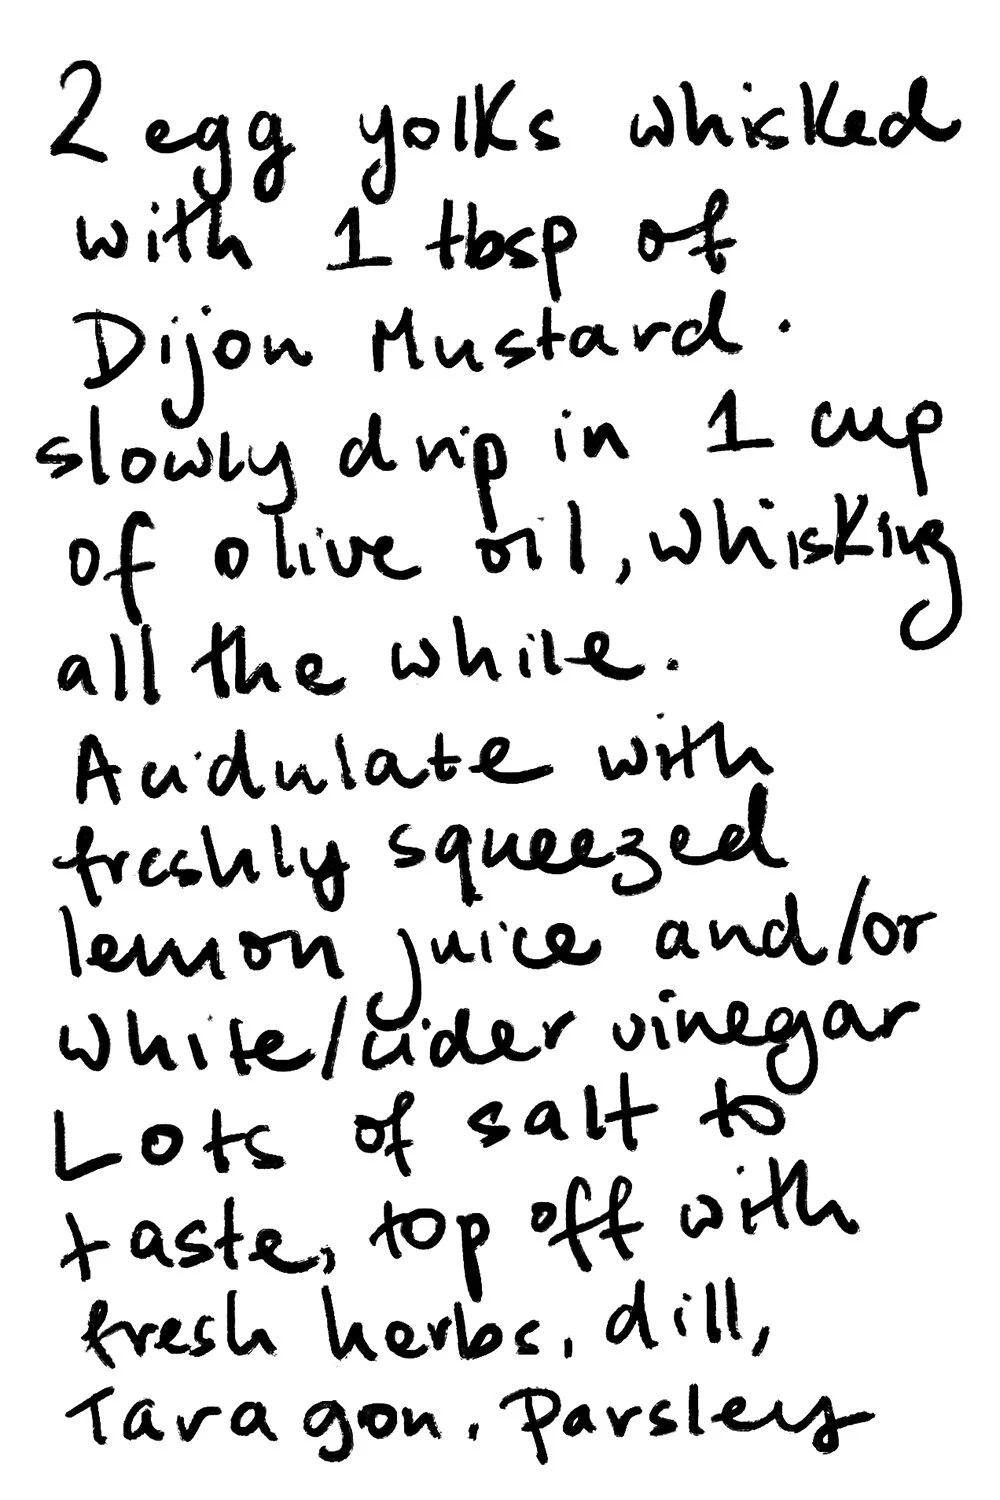 2 egg yolks whisked
with 1 tbsp of
Dijon Mustard.
slowly drip in 1 cup
of olive oil, whisking
all the while.
Acidulate with
freshly squeezed
lemon juice and/or
white/cider vinegar
Lots of salt to
taste, top off with
fresh herbs, dill,
Taragon, Parsley